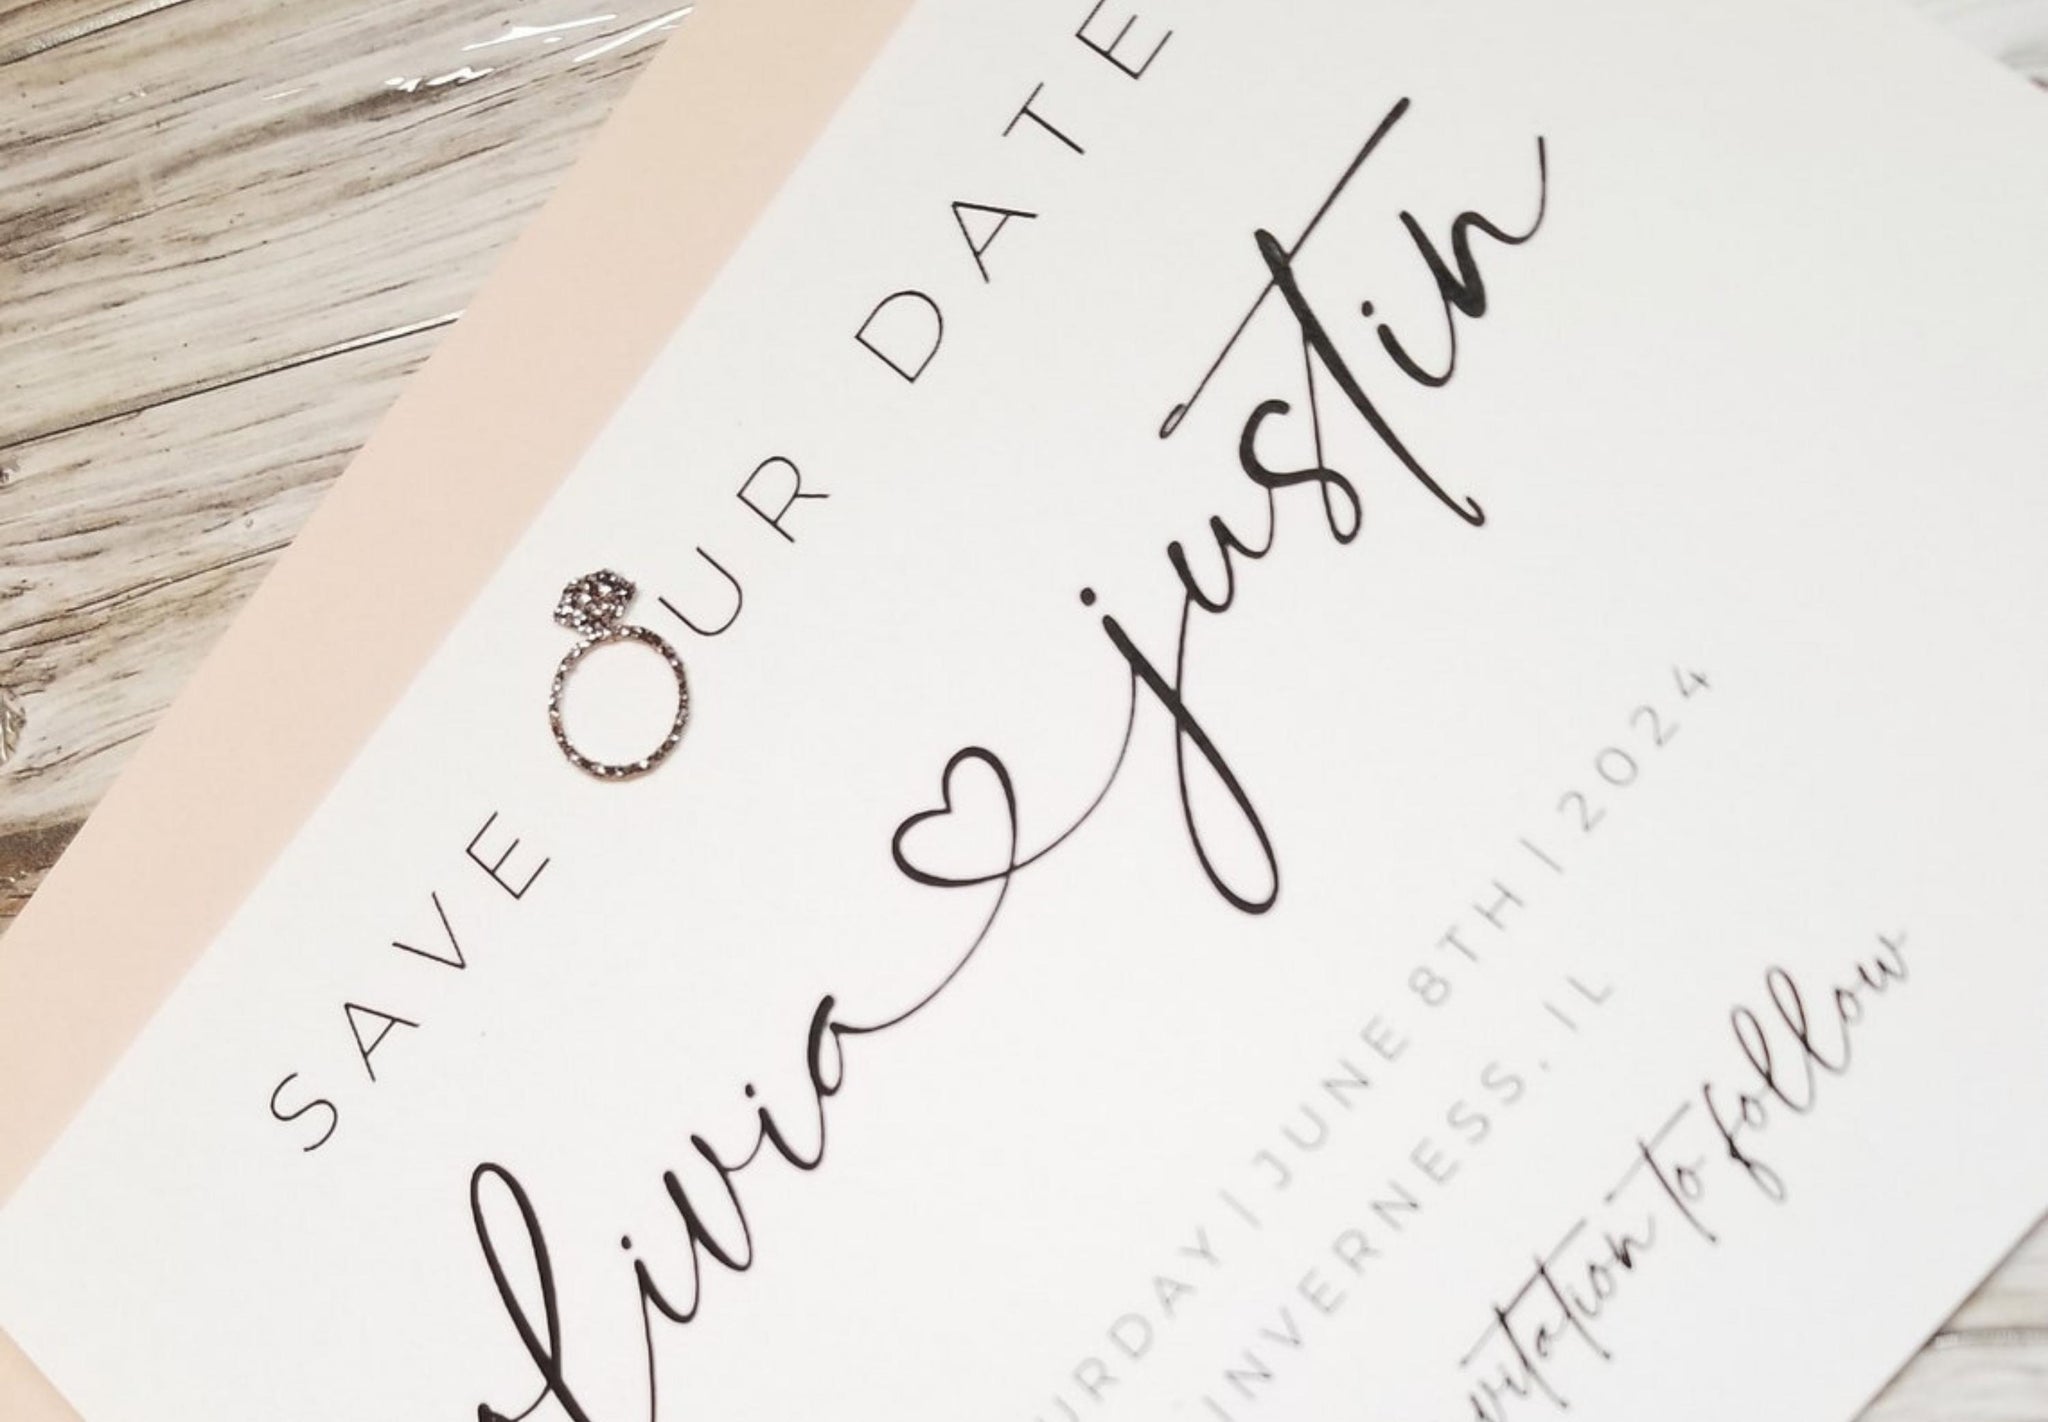 SAVE OUR DATE
olivia justin
URDAY | JUNE 8TH | 2024
INVERNESS, IL
vitation to follow